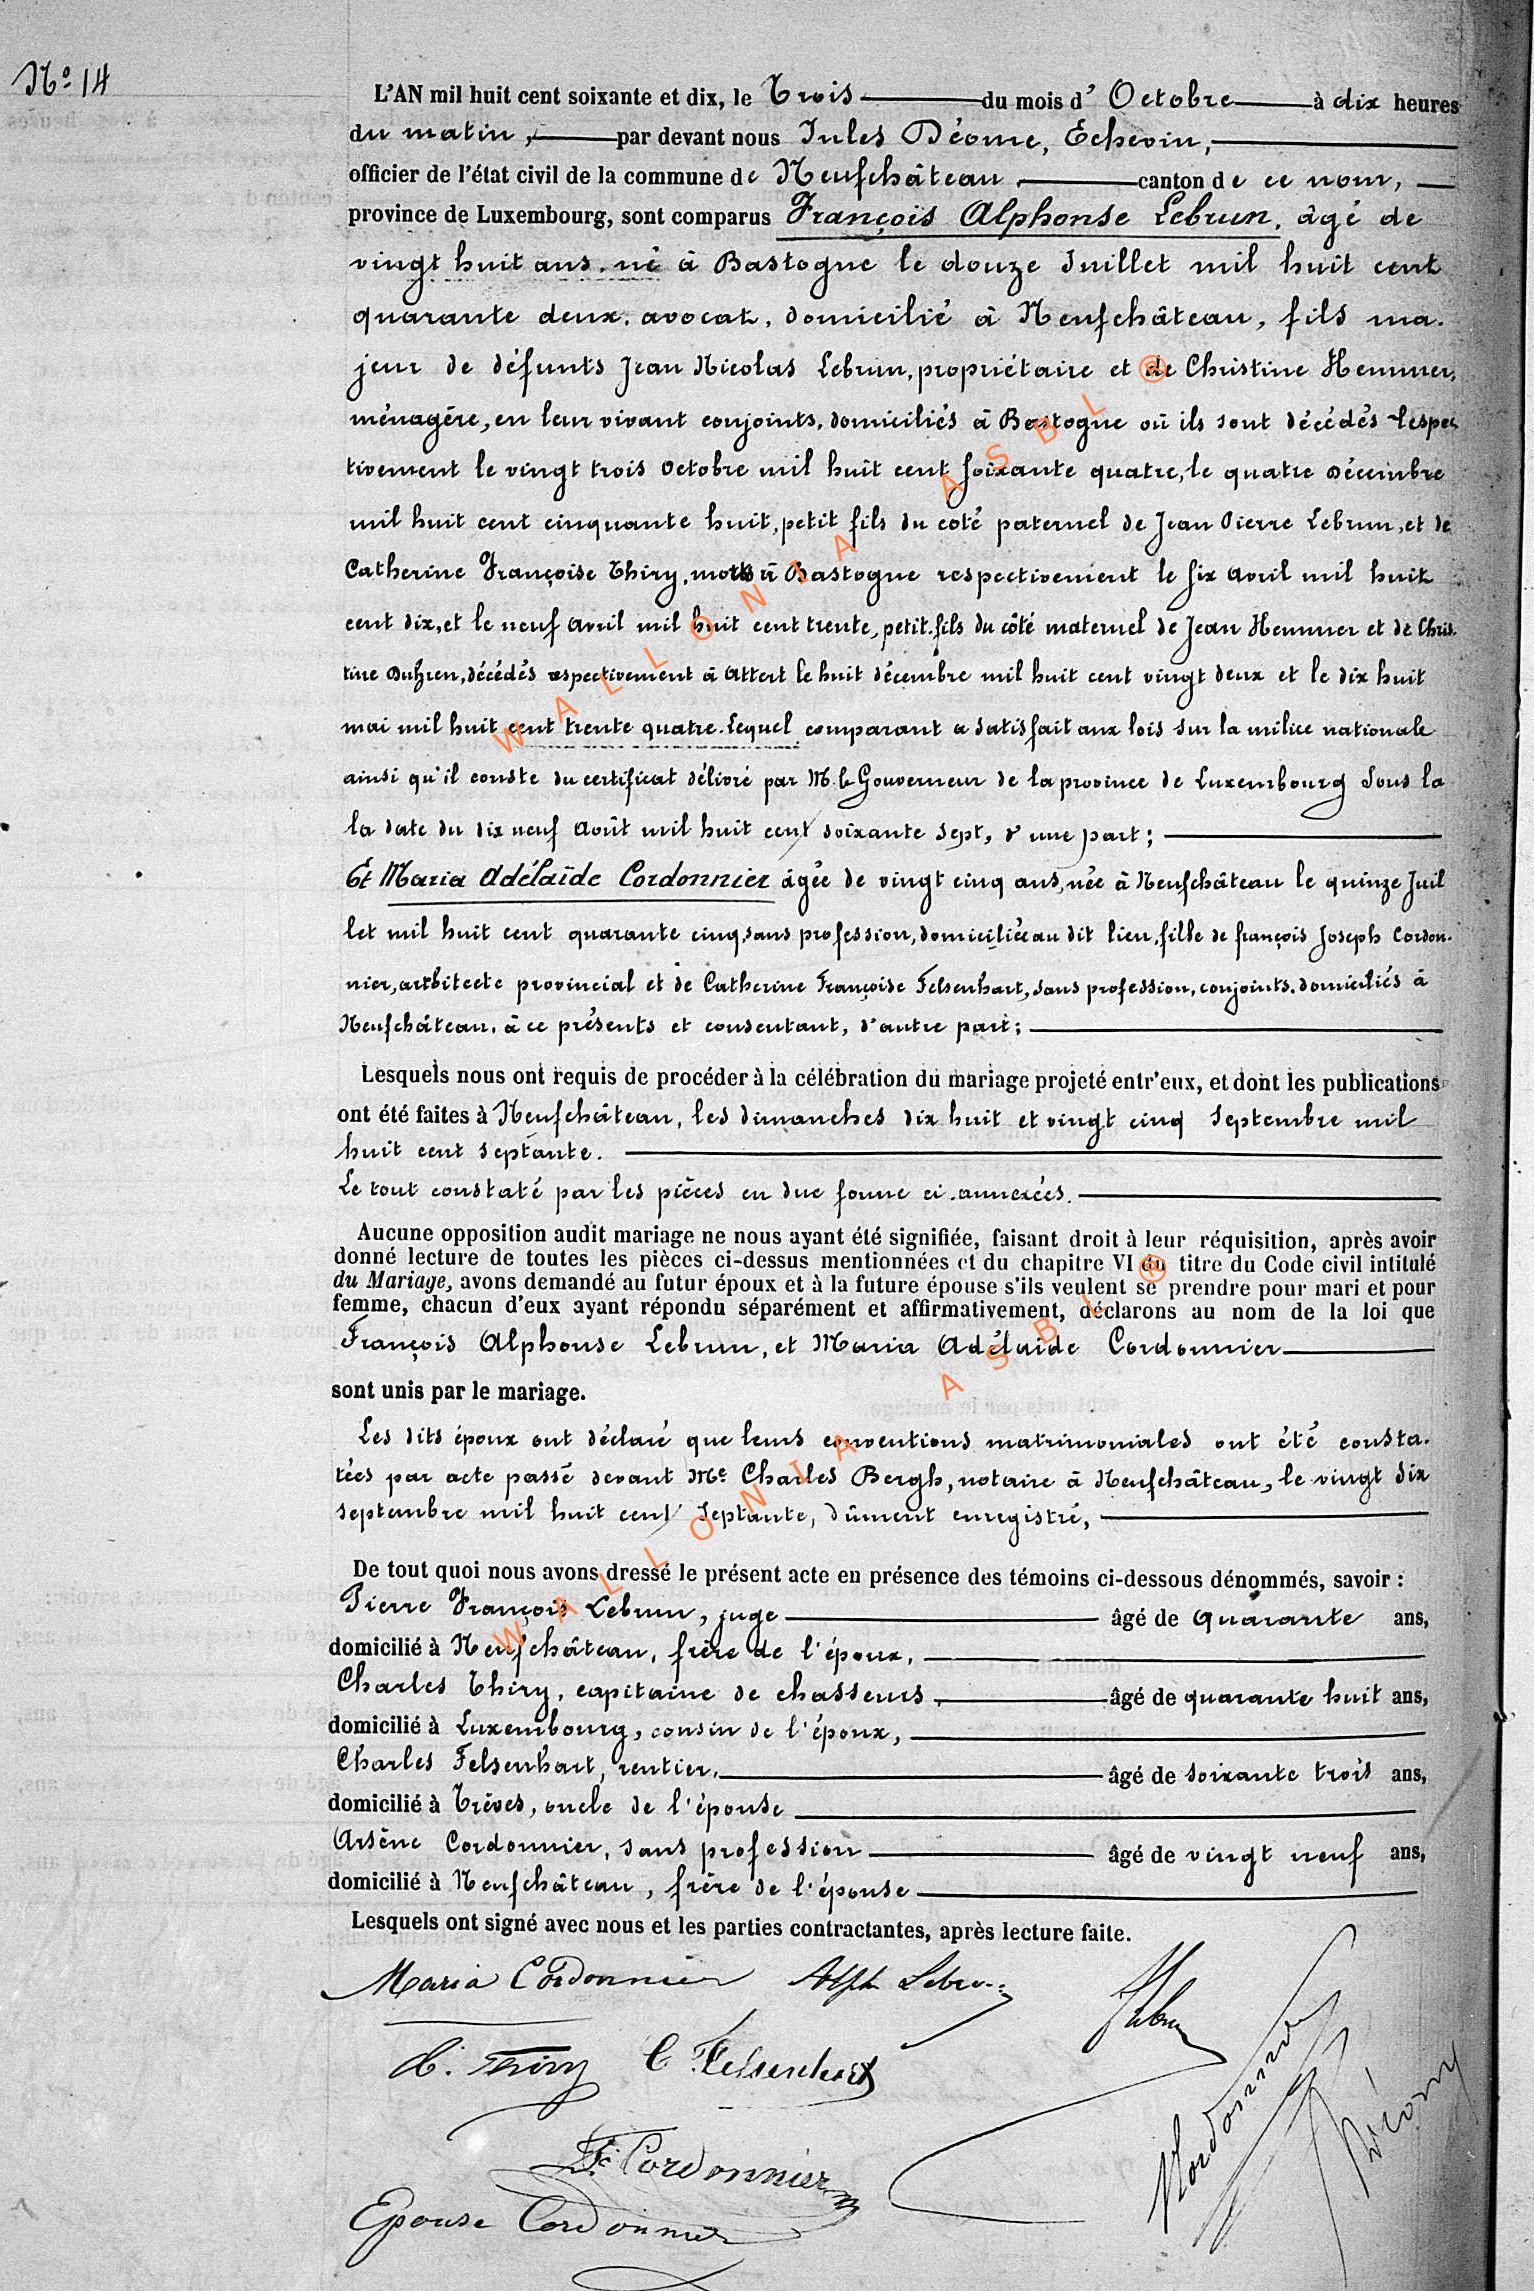 No 14
L'AN mil huit cent soixante et dix, le Trois du mois d' Octobre à dix heures
du matin, par devant nous Jules Déome, Echevin,
officier de l'état civil de la commune de Neufchâteau, canton de ce nom,
province de Luxembourg, sont comparus François Alphonse Lebrun, âgé de
vingt huit ans, né à Bastogne le douze Juillet mil huit cent
quarante deux, avocat, domicilié à Neufchâteau, fils ma-
jeur de défunts Jean Nicolas Lebrun, propriétaire et de Christine Hemmer,
ménagère, en leur vivant conjoints, domiciliés à Bastogne où ils sont décédés respec
tivement le vingt trois Octobre mil huit cent soixante quatre, le quatre Décembre
mil huit cent cinquante huit, petit fils du coté paternel de Jean Pierre Lebrun, et de
Catherine Françoise Thiry, morts à Bastogne respectivement le six Avril mil huit
cent dix, et le neuf Avril mil huit cent trente, petit-fils du côté maternel de Jean Hemmer et de Chris-
tine Duhren, décédés respectivement à Attert le huit décembre mil huit cent vingt deux et le dix huit
mai mil huit cent trente quatre. Lequel comparant a satisfait aux lois sur la milice nationale
ainsi qu'il conste du certificat délivré par M. le Gouverneur de la province de Luxembourg sous la
la date du dix neuf Août mil huit cent soixante sept, d'une part;
Et Maria Adélaïde Cordonnier âgée de vingt cinq ans, née à Neufchâteau le quinze Juil
let mil huit cent quarante cinq, sans profession, domiciliée au dit lieu, fille de françois Joseph Cordon-
nier, architecte provincial et de Catherine Françoise Felsenhart, sans profession, conjoints, domiciliés à
Neufchâteau, à ce présents et consentant, d'autre part;
Lesquels nous ont requis de procéder à la célébration du mariage projeté entr'eux, et dont les publications
ont été faites à Neufchâteau, les dimanches dix huit et vingt cinq Septembre mil
huit cent septante.
Le tout constaté par les pièces en due forme ci-annexées.
Aucune opposition audit mariage ne nous ayant été signifiée, faisant droit à leur réquisition, après avoir
donné lecture de toutes les pièces ci-dessus mentionnées et du chapitre VI du titre du Code civil intitulé
du Mariage, avons demandé au futur époux et à la future épouse s'ils veulent se prendre pour mari et pour
femme, chacun d'eux ayant répondu séparément et affirmativement, déclarons au nom de la loi que
François Alphonse Lebrun, et Maria Adélaide Cordonnier
sont unis par le mariage.
Les dits époux ont déclaré que leurs conventions matrimoniales ont été consta-
tées par acte passé devant Me Charles Bergh, notaire à Neufchâteau, le vingt six
septembre mil huit cent septante, dûment enregistré,
De tout quoi nous avons dressé le présent acte en présence des témoins ci-dessous dénommés, savoir :
Pierre François Lebrun, juge âgé de quarante ans,
domicilié à Neufchâteau, frère de l'époux,
Charles Thiry, capitaine de chasseurs, âgé de quarante huit ans,
domicilié à Luxembourg, cousin de l'époux,
Charles Felsenhart, rentier, âgé de soixante trois ans,
domicilié à Trèves, oncle de l'épouse
Arsène Cordonnier, sans profession âgé de vingt neuf ans,
domicilié à Neufchâteau, frère de l'épouse
Lesquels ont signé avec nous et les parties contractantes, après lecture faite.
Maria Cordonnier Alph Lebrun
Lebrun
Ch. Thiry C Felsenhart
Cordonnier
Cordonnier
Epouse Cordonnier
WALLONIA ASBL ®
WALLONIA ASBL ®